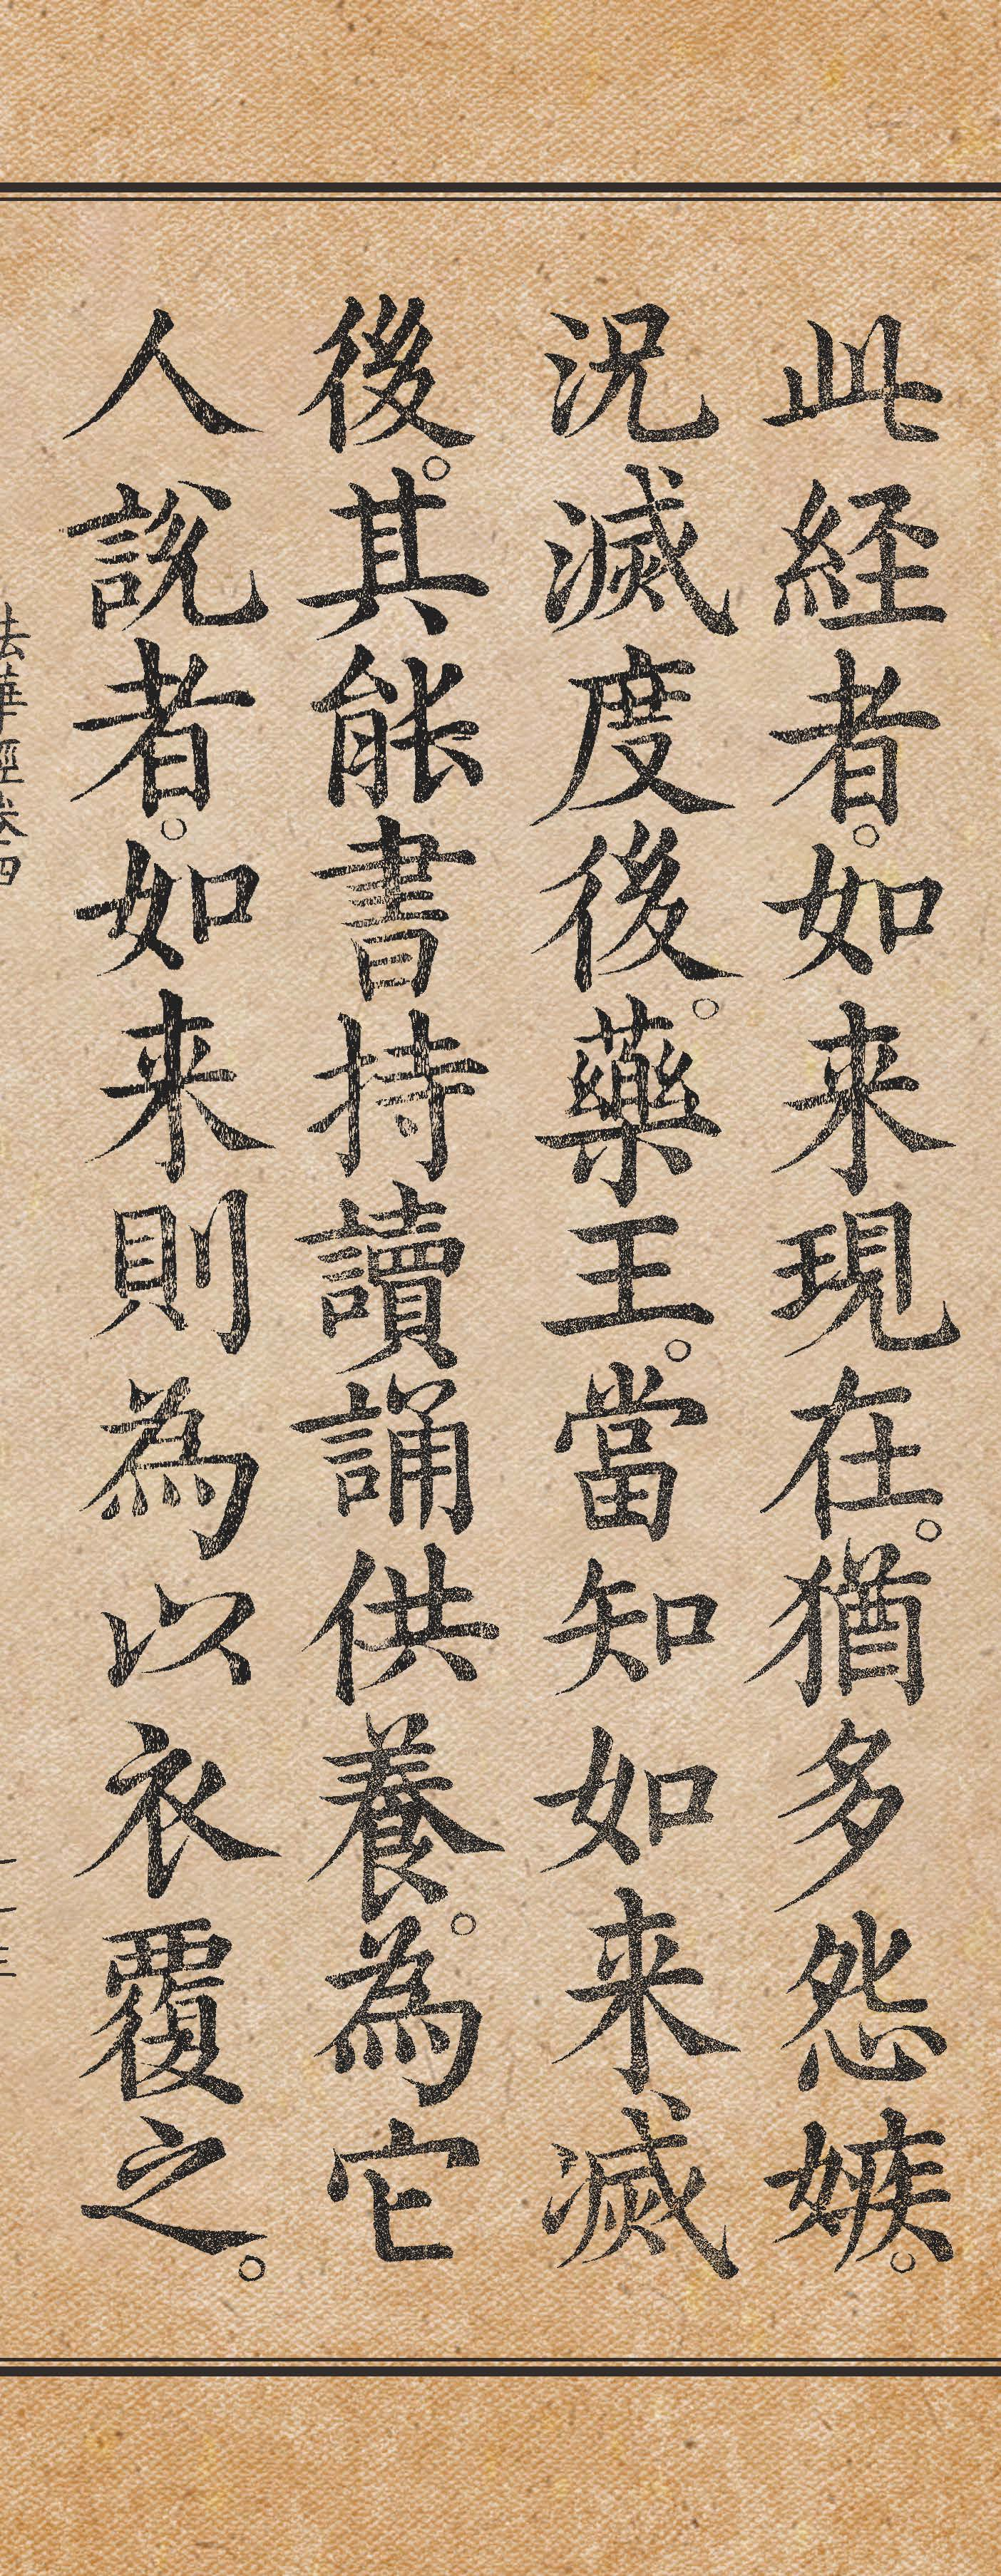 此経者。如来現在。猶多怨嫉。
況滅度後。藥王。當知如来滅
後。其能書持讀誦供養。為它
人說者。如来則為以衣覆之。
法華經卷四